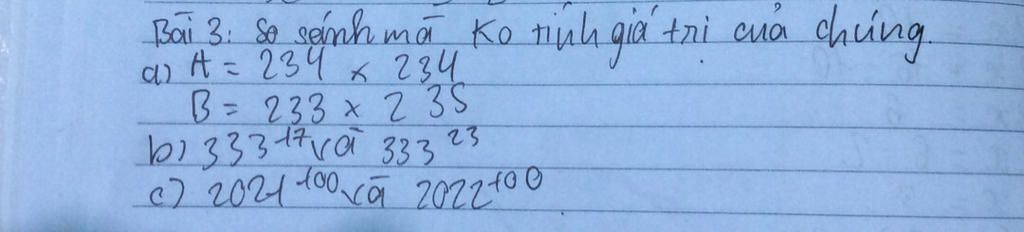 Bài 3: So sánh mà ko tính giá trị của chúng.
a) A = 234 x 234
B = 233 x 235
b) 333¹⁷ và 333²³
c) 2021¹⁰⁰ và 2022¹⁰⁰